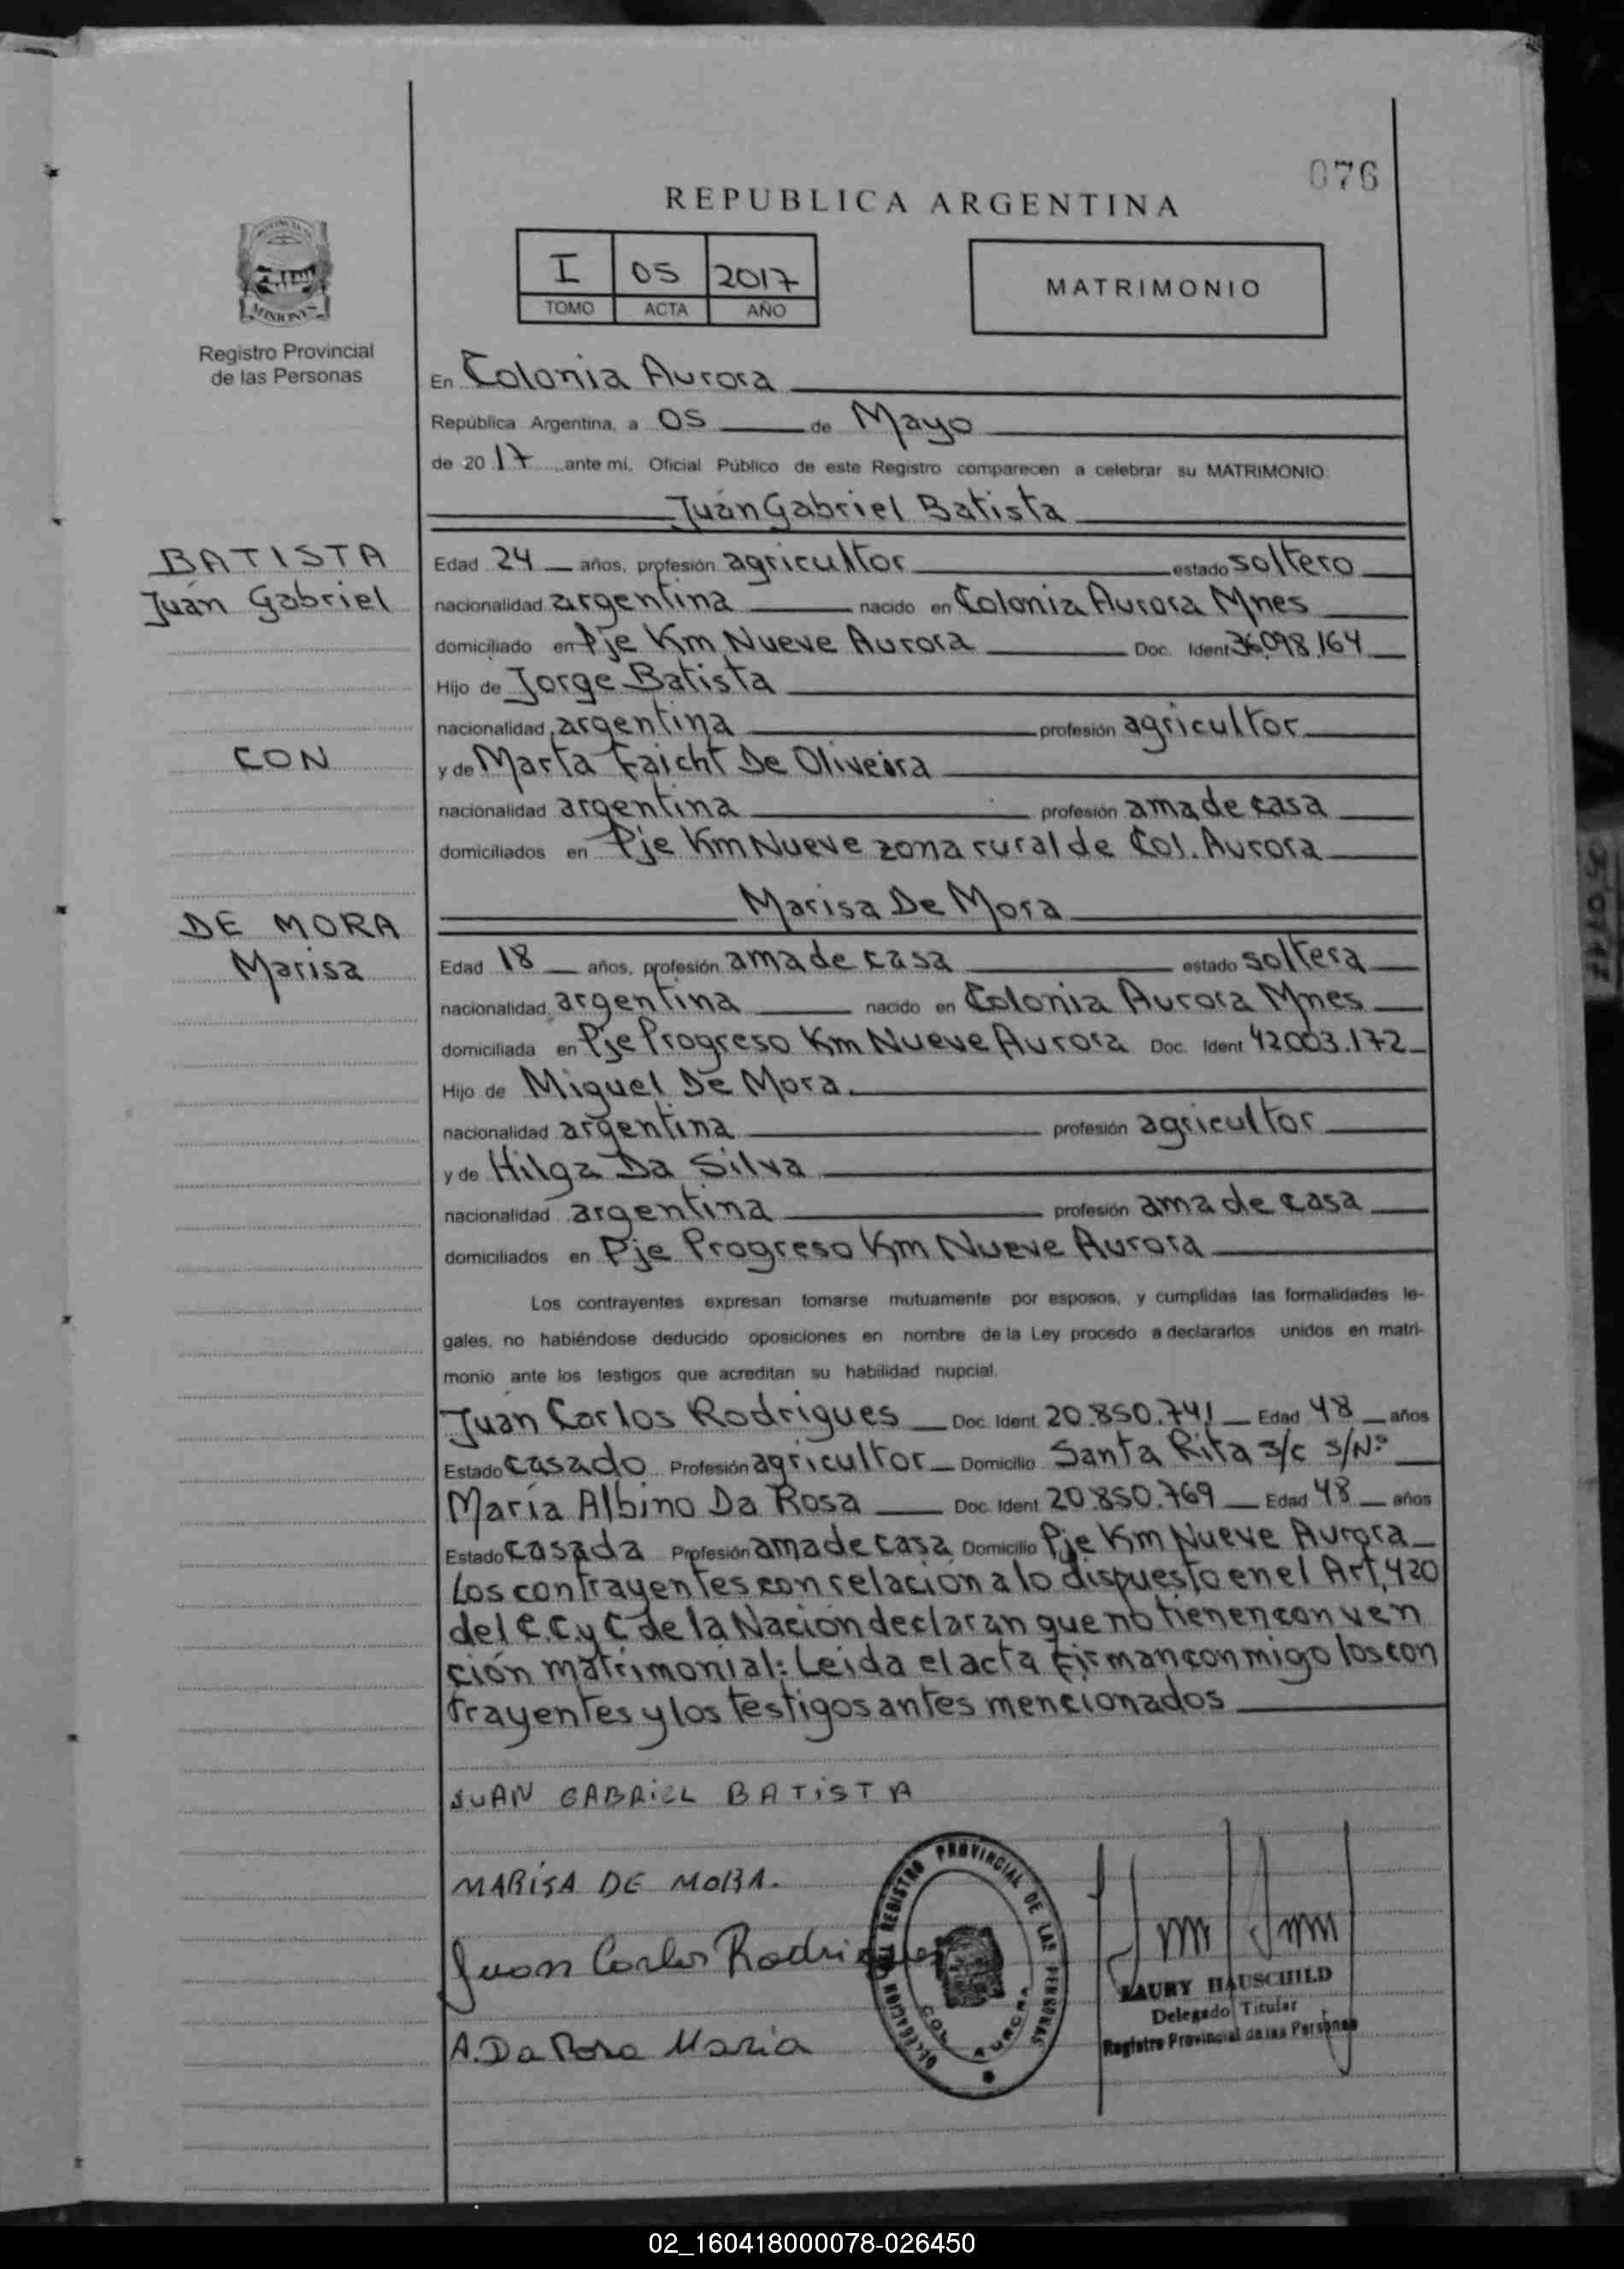 076
REPUBLICA ARGENTINA
I 05 2017
TOMO ACTA AÑO
MATRIMONIO
PROVINCIA DE
MISIONES
Registro Provincial
de las Personas
En Colonia Aurora
República Argentina, a 05 de Mayo
de 20 17 ante mi, Oficial Público de este Registro comparecen a celebrar su MATRIMONIO:
Juán Gabriel Batista
BATISTA
Juán Gabriel
Edad 24 años, profesión agricultor estado soltero
nacionalidad argentina nacido en Colonia Aurora Mnes
domiciliado en Pje Km Nueve Aurora Doc. Ident 36.098.164
Hijo de Jorge Batista
nacionalidad argentina profesión agricultor
CON
y de Marta Faicht De Oliveira
nacionalidad argentina profesión ama de casa
domiciliados en Pje Km Nueve zona rural de Col. Aurora
Marisa De Mora
DE MORA
Marisa
Edad 18 años, profesión ama de casa estado soltera
nacionalidad argentina nacido en Colonia Aurora Mnes
domiciliada en Pje Progreso Km Nueve Aurora Doc. Ident 42003.172
Hijo de Miguel De Mora
nacionalidad argentina profesión agricultor
y de Hilga Da Silva
nacionalidad argentina profesión ama de casa
domiciliados en Pje Progreso Km Nueve Aurora
Los contrayentes expresan tomarse mutuamente por esposos, y cumplidas las formalidades le-
gales, no habiéndose deducido oposiciones en nombre de la Ley procedo a declararlos unidos en matri-
monio ante los testigos que acreditan su habilidad nupcial.
Juan Carlos Rodrigues Doc. Ident. 20.850.741 Edad 48 años
Estado casado Profesión agricultor Domicilio Santa Rita s/c s/Nº
María Albino Da Rosa Doc. Ident 20.850.769 Edad 48 años
Estado casada Profesión ama de casa Domicilio Pje Km Nueve Aurora
Los contrayentes con relación a lo dispuesto en el Art, 420
del C.C.y C de la Nación declaran que no tienen conven
ción matrimonial: Leída el acta firman conmigo los con
trayentes y los testigos antes mencionados
JUAN GABRiEL BATiSTA
MARiSA DE MORA.
Juan Carlos Rodrigues
A. Da Rosa Maria
DELEGACION DEL REGISTRO PROVINCIAL DE LAS PERSONAS
COL. AURORA
LAURY HAUSCHILD
Delegado Titular
Registro Provincial de las Personas
02_160418000078-026450